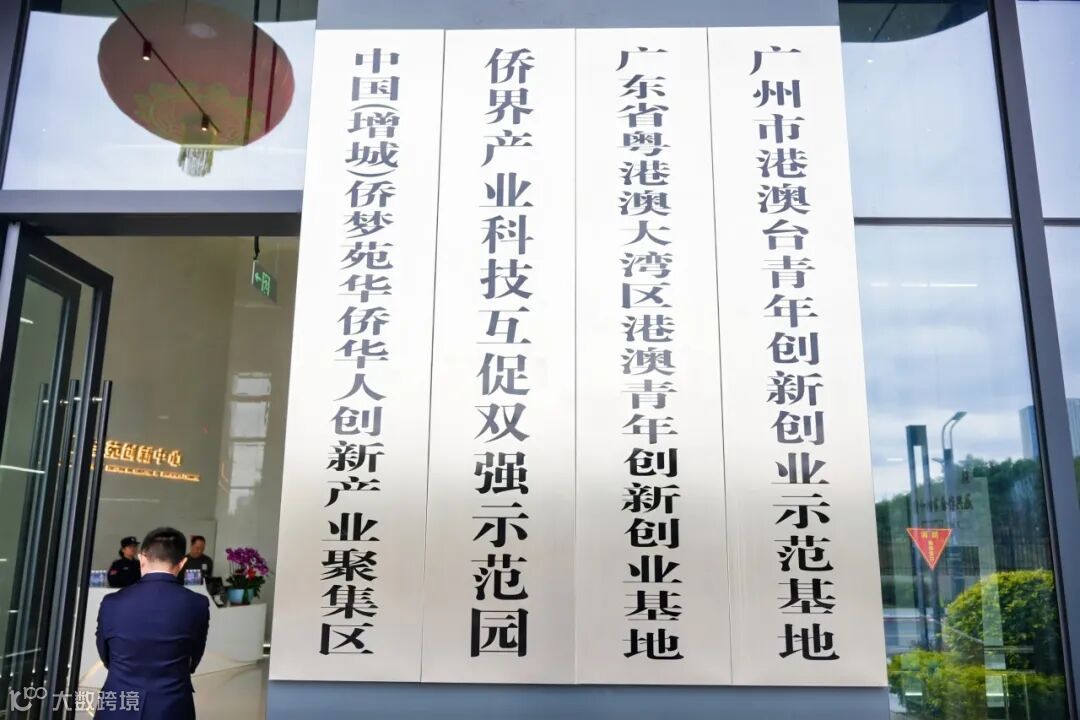 中国(增城)侨梦苑华侨华人创新产业聚集区
侨界产业科技互促双强示范园
广东省粤港澳大湾区港澳青年创新创业基地
广州市港澳台青年创新创业示范基地
苑创新中心
大数跨境